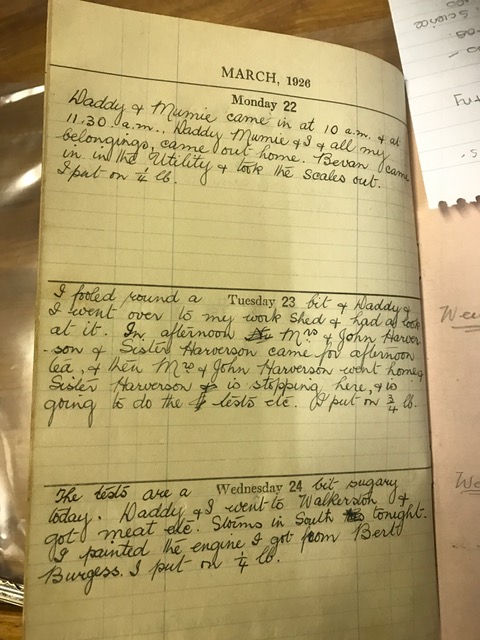 MARCH, 1926
Monday 22
Daddy & Mumie came in at 10 a.m. & at
11.30. a.m.. Daddy Mumie & I & all my
belongings, came out home. Bevan came
in in the Utility & took the scales out.
I put on 1/4 lb.
I fooled round a Tuesday 23 bit & Daddy &
I went over to my work shed & had a look
at it. In afternoon Mrs & John Harver
-son & Sister Harverson came for afternoon
tea, & then Mrs & John Harverson went home &
Sister Harverson is stopping here, & is
going to do the tests etc. I put on 3/4 lb.
The tests are a Wednesday 24 bit sugary
today. Daddy & I went to Walkerston &
got meat etc. Storms in South tonight.
I painted the engine I got from Bert
Burgess. I put on 1/4 lb.
Science